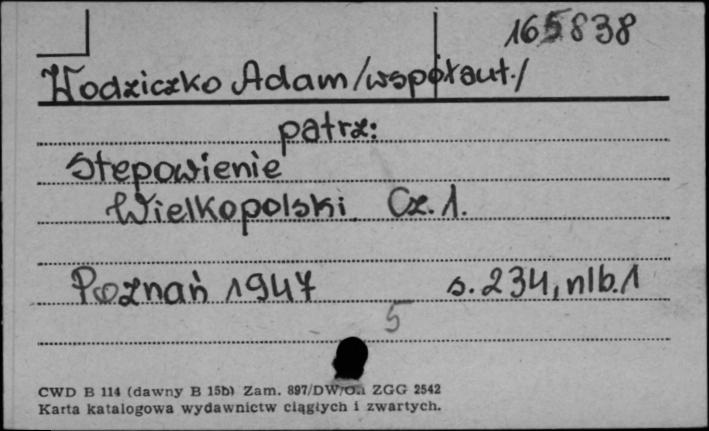 165838
Wodziczko Adam /współaut./
patrz:
Stepowienie
Wielkopolski Cz. 1.
Poznań 1947 s. 234, nlb. 1
5
CWD B 114 (dawny B 15b) Zam. 897/DW/ ZGG 2542
Karta katalogowa wydawnictw ciągłych i zwartych.